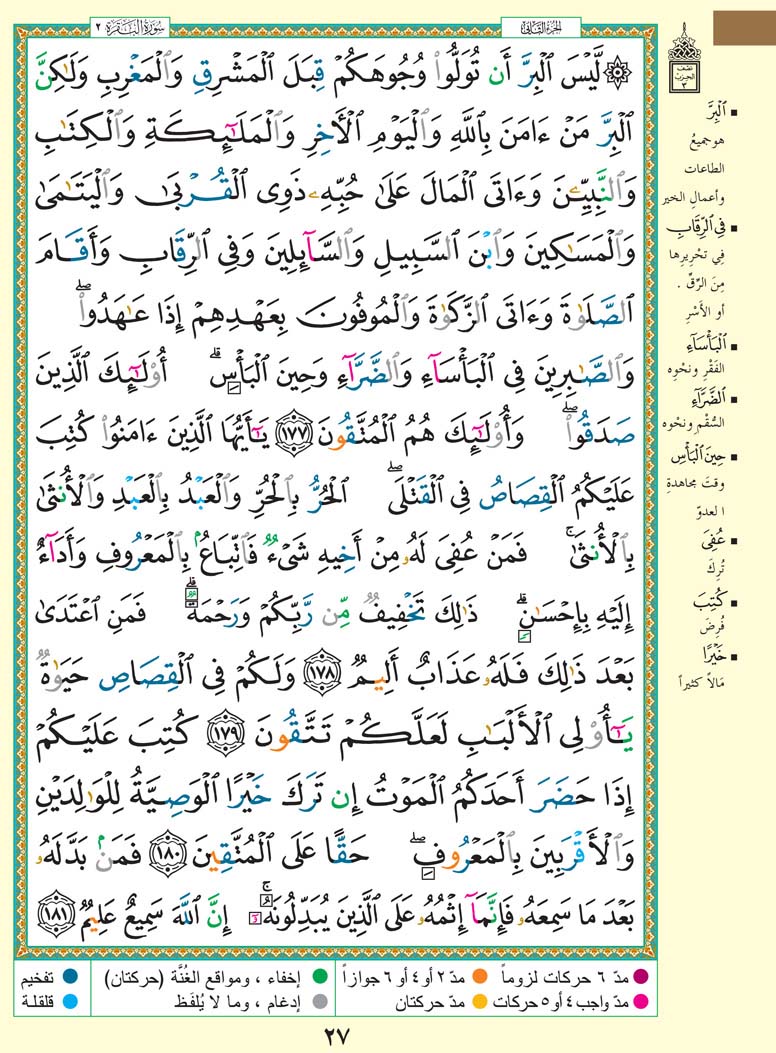 سورة البقرة ٢
الجزء الثاني
نصف الحزب ٣
۞ لَّيْسَ ٱلْبِرَّ أَن تُوَلُّوا۟ وُجُوهَكُمْ قِبَلَ ٱلْمَشْرِقِ وَٱلْمَغْرِبِ وَلَـٰكِنَّ
ٱلْبِرَّ مَنْ ءَامَنَ بِٱللَّهِ وَٱلْيَوْمِ ٱلْـَٔاخِرِ وَٱلْمَلَـٰٓئِكَةِ وَٱلْكِتَـٰبِ
وَٱلنَّبِيِّـۧنَ وَءَاتَى ٱلْمَالَ عَلَىٰ حُبِّهِۦ ذَوِى ٱلْقُرْبَىٰ وَٱلْيَتَـٰمَىٰ
وَٱلْمَسَـٰكِينَ وَٱبْنَ ٱلسَّبِيلِ وَٱلسَّآئِلِينَ وَفِى ٱلرِّقَابِ وَأَقَامَ
ٱلصَّلَوٰةَ وَءَاتَى ٱلزَّكَوٰةَ وَٱلْمُوفُونَ بِعَهْدِهِمْ إِذَا عَـٰهَدُوا۟ ۖ
وَٱلصَّـٰبِرِينَ فِى ٱلْبَأْسَآءِ وَٱلضَّرَّآءِ وَحِينَ ٱلْبَأْسِ ۗ أُو۟لَـٰٓئِكَ ٱلَّذِينَ
صَدَقُوا۟ ۖ وَأُو۟لَـٰٓئِكَ هُمُ ٱلْمُتَّقُونَ ١٧٧ يَـٰٓأَيُّهَا ٱلَّذِينَ ءَامَنُوا۟ كُتِبَ
عَلَيْكُمُ ٱلْقِصَاصُ فِى ٱلْقَتْلَى ۖ ٱلْحُرُّ بِٱلْحُرِّ وَٱلْعَبْدُ بِٱلْعَبْدِ وَٱلْأُنثَىٰ
بِٱلْأُنثَىٰ ۚ فَمَنْ عُفِىَ لَهُۥ مِنْ أَخِيهِ شَىْءٌ فَٱتِّبَاعٌۢ بِٱلْمَعْرُوفِ وَأَدَآءٌ
إِلَيْهِ بِإِحْسَـٰنٍ ۗ ذَٰلِكَ تَخْفِيفٌ مِّن رَّبِّكُمْ وَرَحْمَةٌ ۗ فَمَنِ ٱعْتَدَىٰ
بَعْدَ ذَٰلِكَ فَلَهُۥ عَذَابٌ أَلِيمٌ ١٧٨ وَلَكُمْ فِى ٱلْقِصَاصِ حَيَوٰةٌ
يَـٰٓأُو۟لِى ٱلْأَلْبَـٰبِ لَعَلَّكُمْ تَتَّقُونَ ١٧٩ كُتِبَ عَلَيْكُمْ
إِذَا حَضَرَ أَحَدَكُمُ ٱلْمَوْتُ إِن تَرَكَ خَيْرًا ٱلْوَصِيَّةُ لِلْوَٰلِدَيْنِ
وَٱلْأَقْرَبِينَ بِٱلْمَعْرُوفِ ۖ حَقًّا عَلَى ٱلْمُتَّقِينَ ١٨٠ فَمَنۢ بَدَّلَهُۥ
بَعْدَ مَا سَمِعَهُۥ فَإِنَّمَآ إِثْمُهُۥ عَلَى ٱلَّذِينَ يُبَدِّلُونَهُۥٓ ۚ إِنَّ ٱللَّهَ سَمِيعٌ عَلِيمٌ ١٨١
▪ ٱلْبِرَّ
هو جميعُ
الطاعات
وأعمالِ الخير
▪ فِى ٱلرِّقَابِ
فِي تحْرِيرِها
مِنَ الرِّقِّ .
أو الأَسْرِ
▪ ٱلْبَأْسَآءِ
الفَقْرِ ونحْوِه
▪ ٱلضَّرَّآءِ
السُّقْمِ ونحْوه
▪ حِينَ ٱلْبَأْسِ
وقتَ مجاهدةِ
العدوّ
▪ عُفِىَ
تُرِكَ
▪ كُتِبَ
فُرِضَ
▪ خَيْرًا
مَالاً كثيراً
مدّ ٦ حركات لزوماً مدّ ٢ أو ٤ أو ٦ جوازاً إخفاء ، ومواقع الغُنَّة (حركتان) تفخيم
مدّ واجب ٤ أو ٥ حركات مدّ حركتان إدغام ، وما لا يُلفَظ قلقلة
٢٧